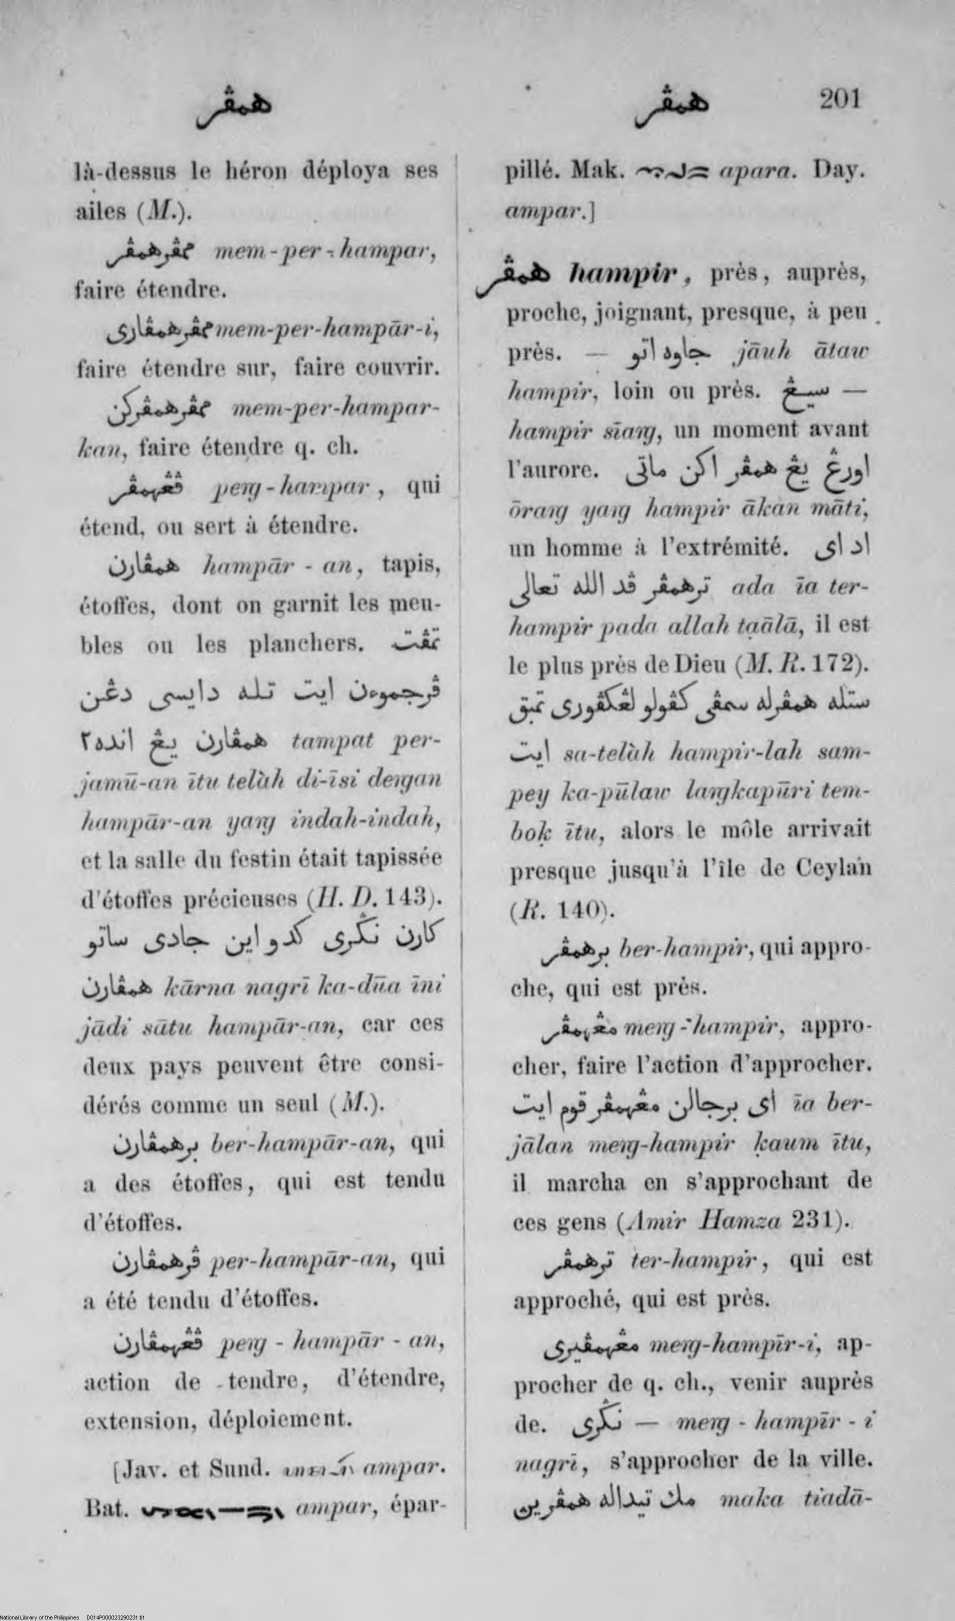 همڤر
همڤر
201
là-dessus le héron déploya ses
ailes (M.).
ممڤرهمڤر mem-per-hampar,
faire étendre.
ممڤرهمڤاري mem-per-hampār-i,
faire étendre sur, faire couvrir.
ممڤرهمڤركن mem-per-hampar-
kan, faire étendre q. ch.
ڤڠهمڤر peŋ-hampar, qui
étend, ou sert à étendre.
همڤارن hampār-an, tapis,
étoffes, dont on garnit les meu-
bles ou les planchers. تمڤت
ڤرجموءن ايت تله دايسى دڠن
همڤارن يڠ انده٢ tampat per-
jamū-an ītu telàh di-īsi deŋan
hampār-an yaŋ indah-indah,
et la salle du festin était tapissée
d'étoffes précieuses (H. D. 143).
كارن نڬري كدو اين جادي ساتو
همڤارن kārna nagrī ka-dūa īni
jādi sātu hampār-an, car ces
deux pays peuvent être consi-
dérés comme un seul (M.).
برهمڤارن ber-hampār-an, qui
a des étoffes, qui est tendu
d'étoffes.
ڤرهمڤارن per-hampār-an, qui
a été tendu d'étoffes.
ڤڠهمڤارن peŋ-hampār-an,
action de tendre, d'étendre,
extension, déploiement.
[Jav. et Sund. ampar.
Bat. ampar, épar-
pillé. Mak. apara. Day.
ampar.]
همڤر hampir, près, auprès,
proche, joignant, presque, à peu
près. — جاوه اتو jāuh ātaw
hampir, loin ou près. سيڠ —
hampir sīaŋ, un moment avant
l'aurore. اورڠ يڠ همڤر اكن ماتى
ōraŋ yaŋ hampir ākan māti,
un homme à l'extrémité. اد اى
ترهمڤر ڤد الله تعالى ada īa ter-
hampir pada allah taālā, il est
le plus près de Dieu (M. R. 172).
ستله همڤرله سمڤى كڤولو لڠكڤورى تمبق
ايت sa-telàh hampir-lah sam-
pey ka-pūlaw laŋkapūri tem-
boḳ ītu, alors le môle arrivait
presque jusqu'à l'île de Ceylan
(R. 140).
برهمڤر ber-hampir, qui appro-
che, qui est près.
مڠهمڤر meŋ-hampir, appro-
cher, faire l'action d'approcher.
اى برجالن مڠهمڤر قوم ايت īa ber-
jālan meŋ-hampir ḳaum ītu,
il marcha en s'approchant de
ces gens (Amir Hamza 231).
ترهمڤر ter-hampir, qui est
approché, qui est près.
مڠهمڤيرى meŋ-hampīr-i, ap-
procher de q. ch., venir auprès
de. نڬرى — meŋ-hampīr-i
nagrī, s'approcher de la ville.
مك تيداله همڤرين maka tiadā-